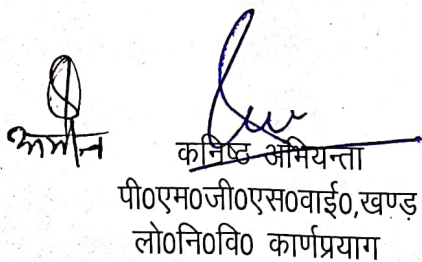 अमीन
कनिष्ठ अभियन्ता
पी0एम0जी0एस0वाई0,खण्ड
लो0नि0वि0 कार्णप्रयाग